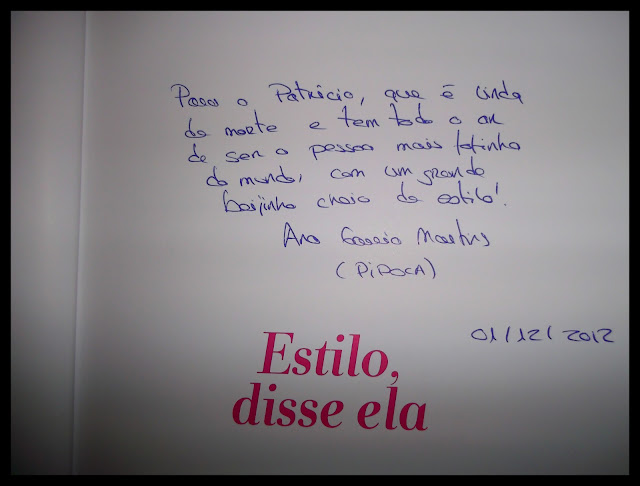 Para a Patrícia, que é linda
da morte e tem todo o ar
de ser a pessoa mais fofinha
do mundo, com um grande
beijinho cheio de estilo!
Ana Garcia Martins
(PIPOCA)
01/12/2012
Estilo,
disse ela